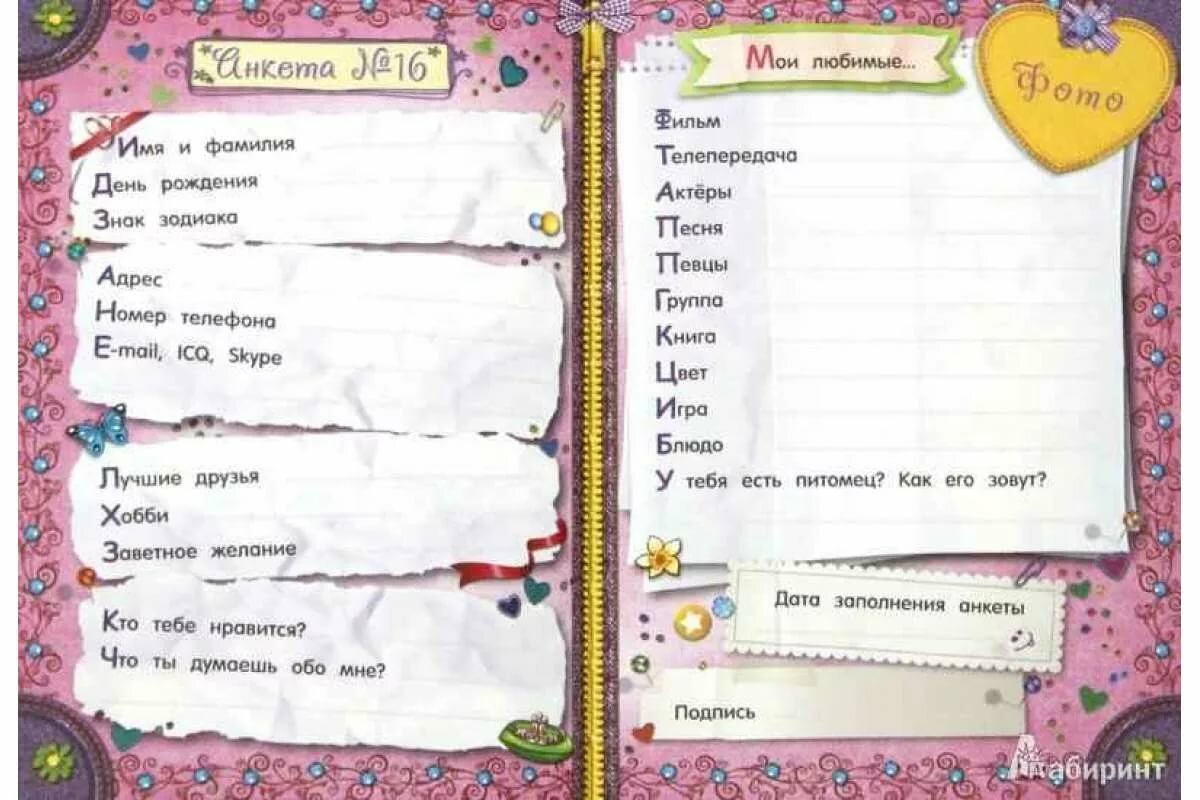 Анкета №16
Имя и фамилия
День рождения
Знак зодиака
Адрес
Номер телефона
E-mail, ICQ, Skype
Лучшие друзья
Хобби
Заветное желание
Кто тебе нравится?
Что ты думаешь обо мне?
Мои любимые...
Фото
Фильм
Телепередача
Актёры
Песня
Певцы
Группа
Книга
Цвет
Игра
Блюдо
У тебя есть питомец? Как его зовут?
Дата заполнения анкеты
Подпись
Лабиринт